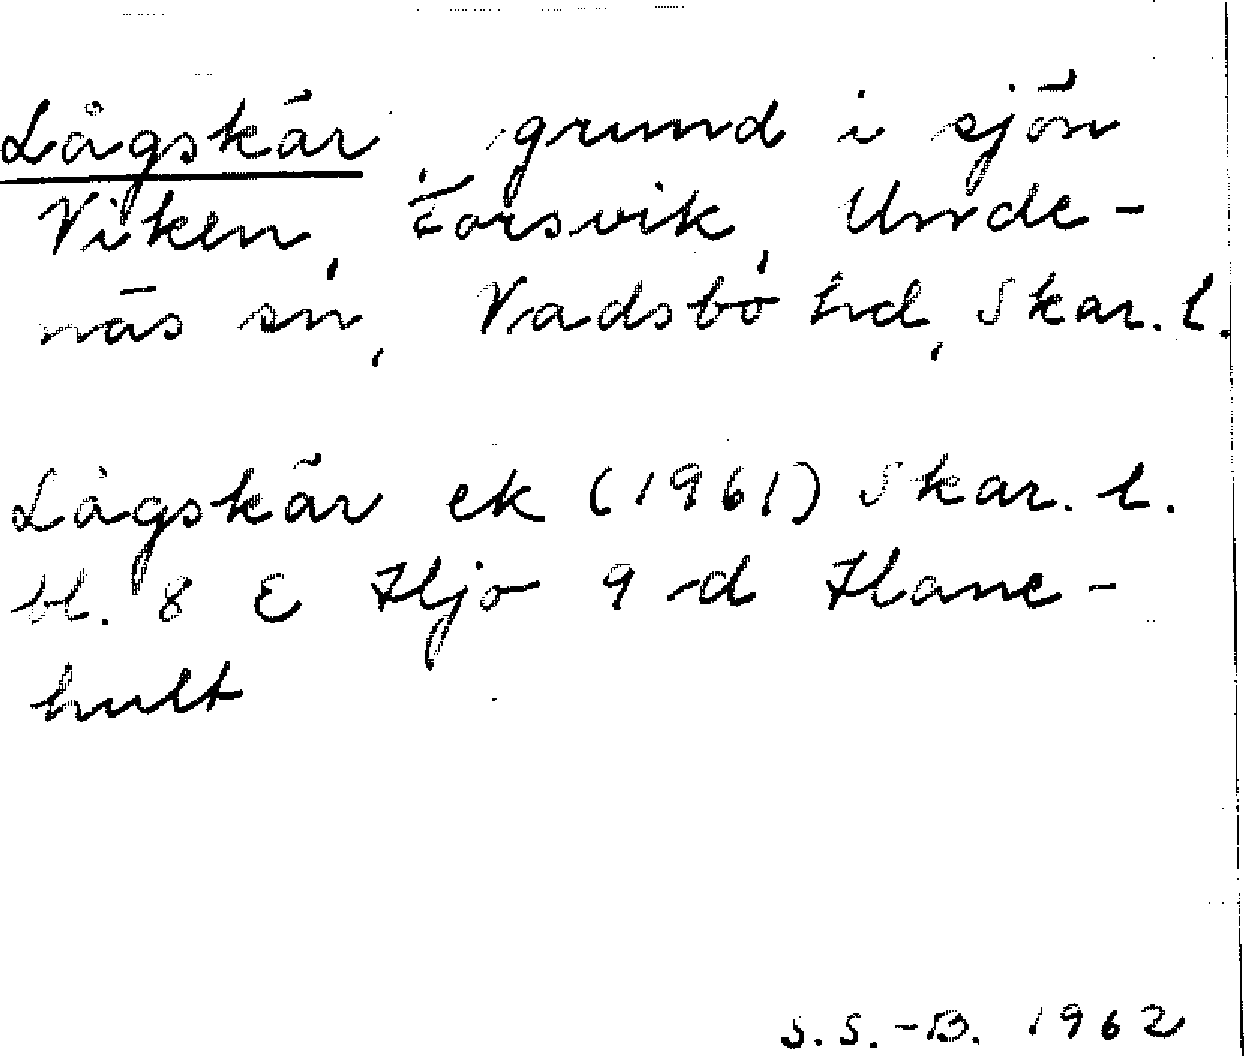 Lågskär, grund i sjön
Viken, Forsvik, Unde-
näs sn, Vadsbo hd, Skar. l.
Lågskär ek (1961) Skar. l.
bl. 8 E Hjo 9 d Hane-
hult
S. S.-B. 1962